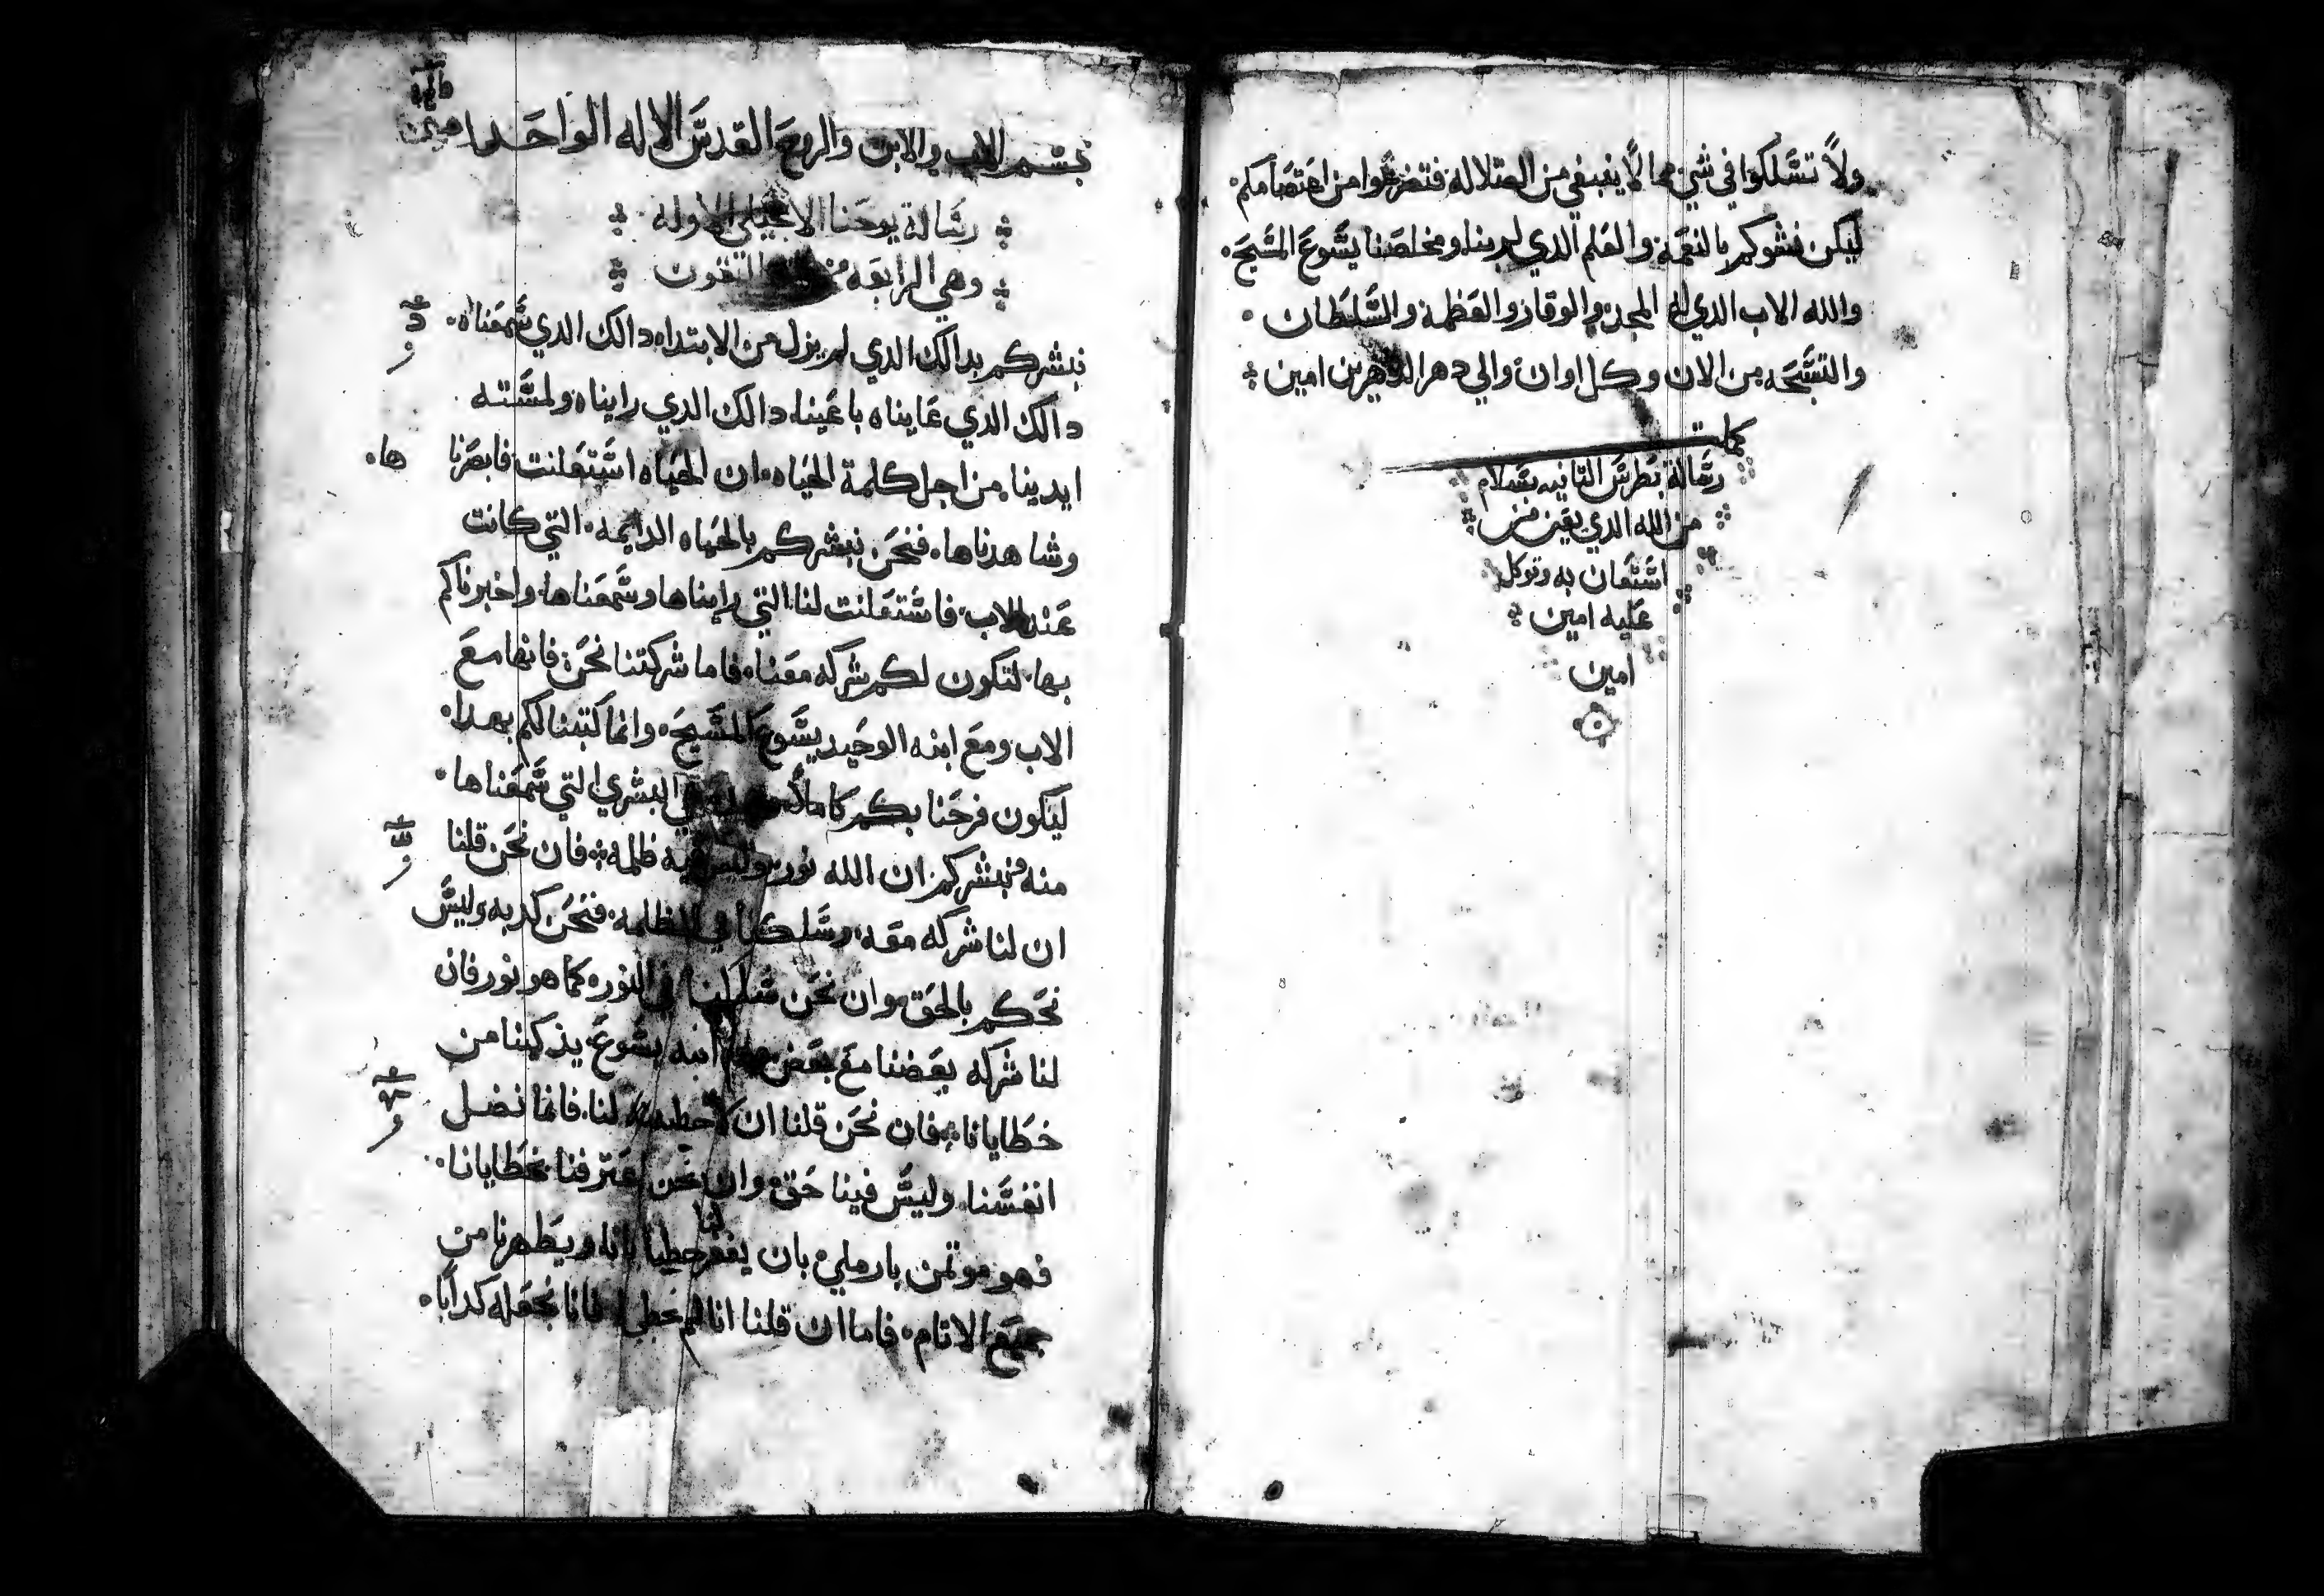 ولا تسلكوا في شي مما لا ينبغي من الضلاله فتضرعوا من اعتصامكم.
ليكن نشوكم بالنعمه والعلم الدي لربنا ومخلصنا يسوع المسيح.
والله الاب الدي له المجد والوقار والعظمه والسلطان.
والتسبحه من الان وكل اوان والي دهر الداهرين امين
كملت
رسالة بطرس التانيه بسلام
من الله الدي يعين من
استعان به وتوكل
عليه امين
امين
بسم الاب والابن والروح القدس الاله الواحد امين
رسالة يوحنا الانجيلي الاوله
وهي الرابعه من القتاليقون
نبشركم بدالك الدي لم يزل من الابتداء. دالك الدي سمعناه.
دالك الدي عايناه باعيننا. دالك الدي رايناه ولمسته
ايدينا من اجل كلمة الحياه. ان الحياه استعلنت فابصرنا ها.
وشاهدناها. فنحن نبشركم بالحياه الدايمه. التي كانت
عند الاب. فاستعلنت لنا التي رايناها وسمعناها. واخبرناكم
بها. لتكون لكم شركه معنا. فاما شركتنا نحن فانها مع
الاب ومع ابنه الوحيد يسوع المسيح. وانما كتبنا لكم بهدا.
ليكون فرحنا بكم كاملا البشري التي سمعناها.
منه ونبشركم ان الله نور وليس فيه ظلمه. فان نحن قلنا
ان لنا شركه معه. وسلكنا في الظلمه. فنحن كدبه وليس
نحكم بالحق وان نحن سلكنا في النور. كما هو نور فان
لنا شركه بعضنا مع بعض ابنه يسوع يذكينا من
خطايانا. فان نحن قلنا ان لا خطيه لنا. فانما نضل
انفسنا. وليس فينا حق. وان نحن اعترفنا بخطايانا.
فهو موتمن بار ملي بان يغفر لنا خطايانا ويطهرنا من
جميع الاتام. فاما ان قلنا انا لم نخطي فانا نجعله كدابا.